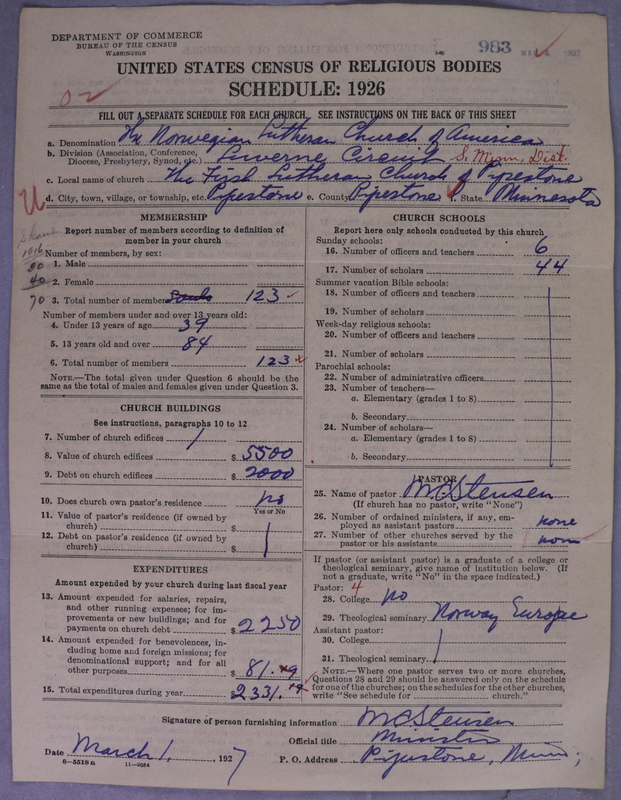 DEPARTMENT OF COMMERCE
BUREAU OF THE CENSUS
WASHINGTON
983
UNITED STATES CENSUS OF RELIGIOUS BODIES
SCHEDULE: 1926
FILL OUT A SEPARATE SCHEDULE FOR EACH CHURCH. SEE INSTRUCTIONS ON THE BACK OF THIS SHEET
a. Denomination The Norwegian Lutheran Church of America
b. Division (Association, Conference, Diocese, Presbytery, Synod, etc.) Luverne Circuit S. Minn. Dist.
c. Local name of church The First Lutheran Church of Pipestone
d. City, town, village, or township, etc. Pipestone e. County Pipestone f. State Minnesota
MEMBERSHIP
Report number of members according to definition of
member in your church
1916
Number of members, by sex:
30 1. Male
40 2. Female
70 3. Total number of members souls 123
Number of members under and over 13 years old:
4. Under 13 years of age 39
5. 13 years old and over 84
6. Total number of members 123
NOTE.—The total given under Question 6 should be the
same as the total of males and females given under Question 3.
CHURCH BUILDINGS
See instructions, paragraphs 10 to 12
7. Number of church edifices 1
8. Value of church edifices $ 5500
9. Debt on church edifices $ 2000
10. Does church own pastor's residence no
Yes or No
11. Value of pastor's residence (if owned by
church) $
12. Debt on pastor's residence (if owned by
church) $
EXPENDITURES
Amount expended by your church during last fiscal year
13. Amount expended for salaries, repairs,
and other running expenses; for im-
provements or new buildings; and for
payments on church debt $ 2250
14. Amount expended for benevolences, in-
cluding home and foreign missions; for
denominational support; and for all
other purposes $ 81.
15. Total expenditures during year $ 2331.
CHURCH SCHOOLS
Report here only schools conducted by this church
Sunday schools:
16. Number of officers and teachers 6
17. Number of scholars 44
Summer vacation Bible schools:
18. Number of officers and teachers
19. Number of scholars
Week-day religious schools:
20. Number of officers and teachers
21. Number of scholars
Parochial schools:
22. Number of administrative officers
23. Number of teachers—
a. Elementary (grades 1 to 8)
b. Secondary
24. Number of scholars—
a. Elementary (grades 1 to 8)
b. Secondary
PASTOR
25. Name of pastor M C Stensen
(If church has no pastor, write "None")
26. Number of ordained ministers, if any, em-
ployed as assistant pastors none
27. Number of other churches served by the
pastor or his assistants none
If pastor (or assistant pastor) is a graduate of a college or
theological seminary, give name of institution below. (If
not a graduate, write "No" in the space indicated.)
Pastor: 4
28. College no
29. Theological seminary Norway Europe
Assistant pastor:
30. College
31. Theological seminary
NOTE.—Where one pastor serves two or more churches,
Questions 28 and 29 should be answered only on the schedule
for one of the churches; on the schedules for the other churches,
write "See schedule for church."
Signature of person furnishing information M C Stensen
Official title Minister
Date March 1, 1927 P. O. Address Pipestone, Minn;
8—5518 a 11—9564